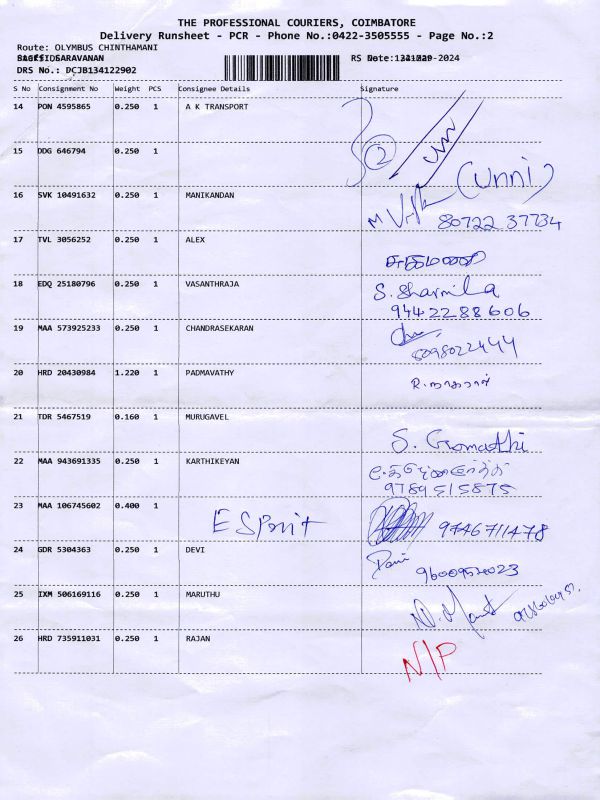 THE PROFESSIONAL COURIERS, COIMBATORE
Delivery Runsheet - PCR - Phone No.:0422-3505555 - Page No.:2
Route: OLYMBUS CHINTHAMANI
SARAVANAN
RS Date: -2024
DRS No.: DCJB134122902
S No Consignment No Weight PCS Consignee Details Signature
14 PON 4595865 0.250 1 A K TRANSPORT
2
15 DDG 646794 0.250 1
(Unni)
16 SVK 10491632 0.250 1 MANIKANDAN
80722 37734
17 TVL 3056252 0.250 1 ALEX
18 EDQ 25180796 0.250 1 VASANTHRAJA S. Sharmila
9442288606
19 MAA 573925233 0.250 1 CHANDRASEKARAN
8098022444
20 HRD 20430984 1.220 1 PADMAVATHY
21 TDR 5467519 0.160 1 MURUGAVEL
S. Gomathi
22 MAA 943691335 0.250 1 KARTHIKEYAN
9789515875
23 MAA 106745602 0.400 1
ESprit 9746711478
24 GDR 5304363 0.250 1 DEVI
25 IXM 506169116 0.250 1 MARUTHU
26 HRD 735911031 0.250 1 RAJAN
N/P